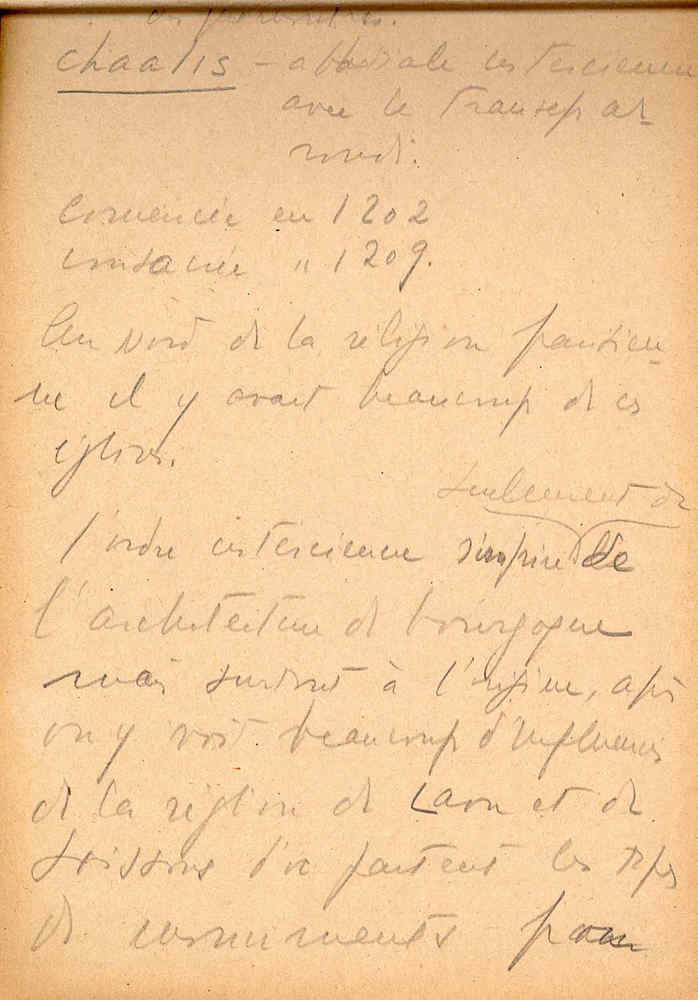 chaalis – abbatiale cistercienne
avec le transept ar-
rondi.
Comencée en 1202
consacrée " 1209.
Au Nord de la religion parisien-
ne il y avait beaucoup de ces
églises.
seulement de
l'ordre cistercienne s'inspire de
l'architecture de bourgogne
mais surtout à l'origine, après
on y voit beaucoup d'influences
de la région de Laon et de
Soissons d'où partent les types
de monuments pour